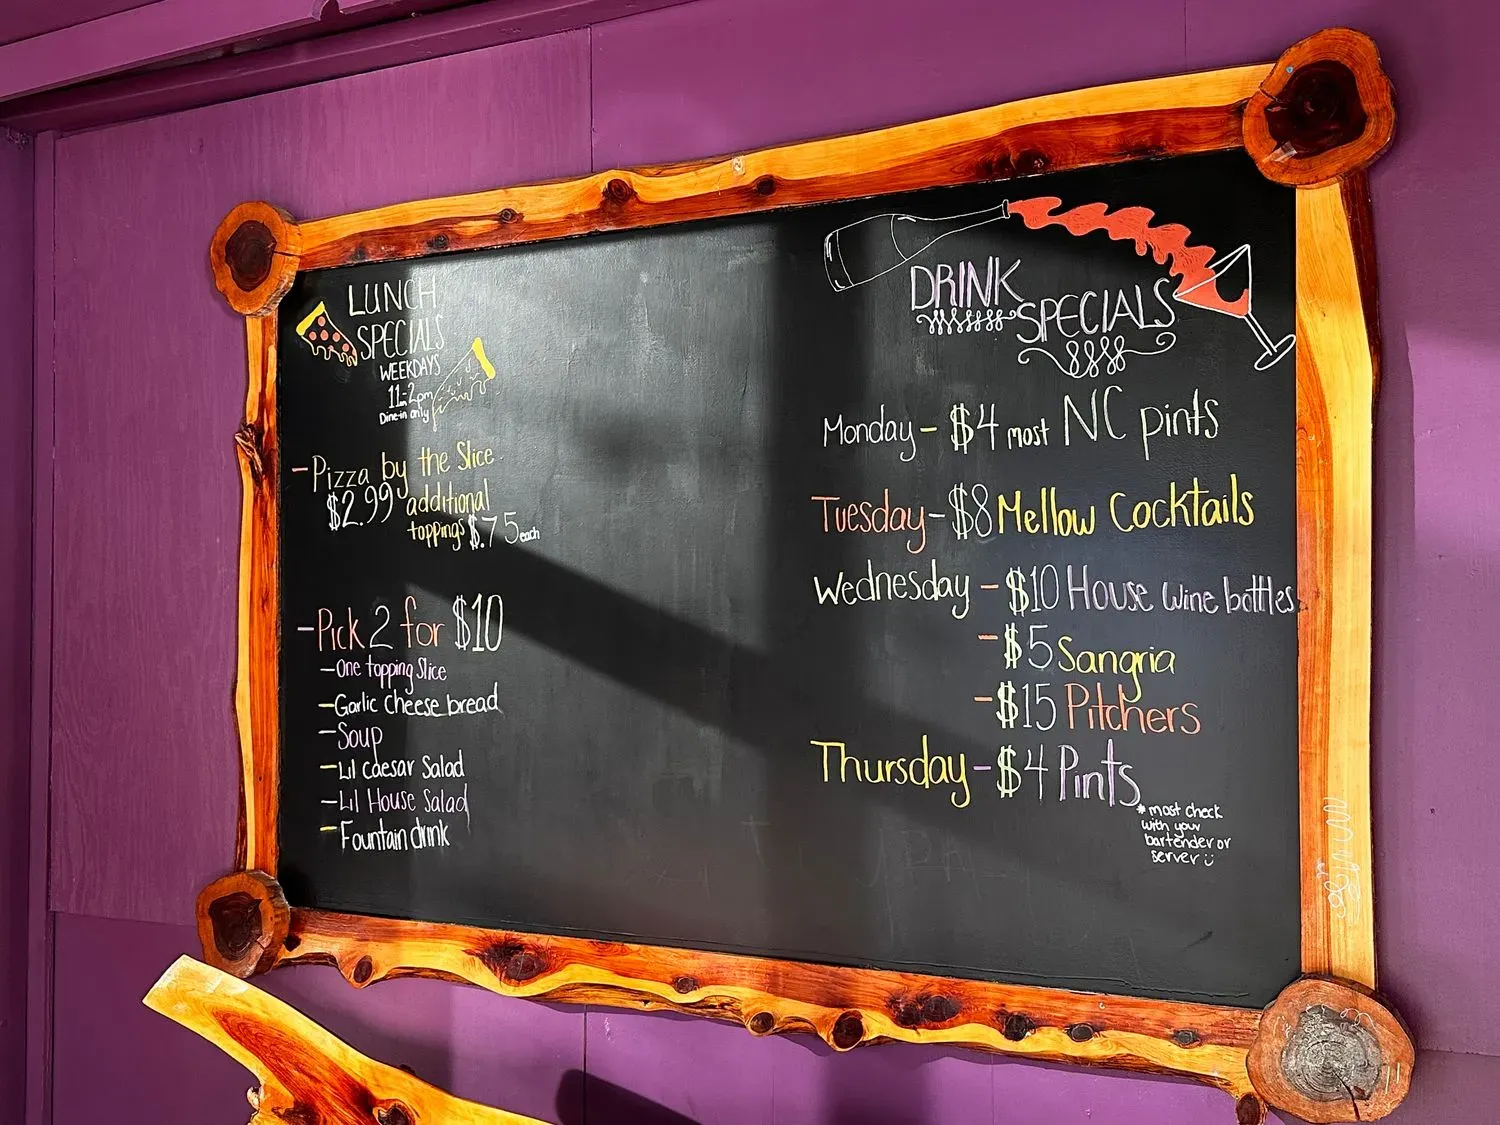 LUNCH
SPECIALS
WEEKDAYS
11-2pm
Dine-in only
-Pizza by the Slice
$2.99 additional
toppings $.75 each
-Pick 2 for $10
-One topping Slice
-Garlic Cheese bread
-Soup
-Lil Caesar Salad
-Lil House Salad
-Fountain drink
DRINK
SPECIALS
Monday - $4 most NC pints
Tuesday - $8 Mellow Cocktails
Wednesday - $10 House Wine bottles
- $5 Sangria
- $15 Pitchers
Thursday - $4 Pints
* most check
with your
bartender or
server :)